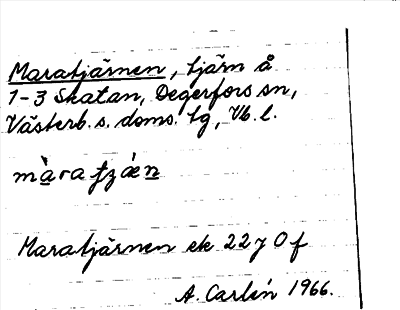 Maratjärnen, tjärn å
1-3 Skatan, Degerfors sn,
Västerb. s. doms. lg, Vb. l.
Maratjärnen ek 22 J 0 f
A. Carlén 1966.